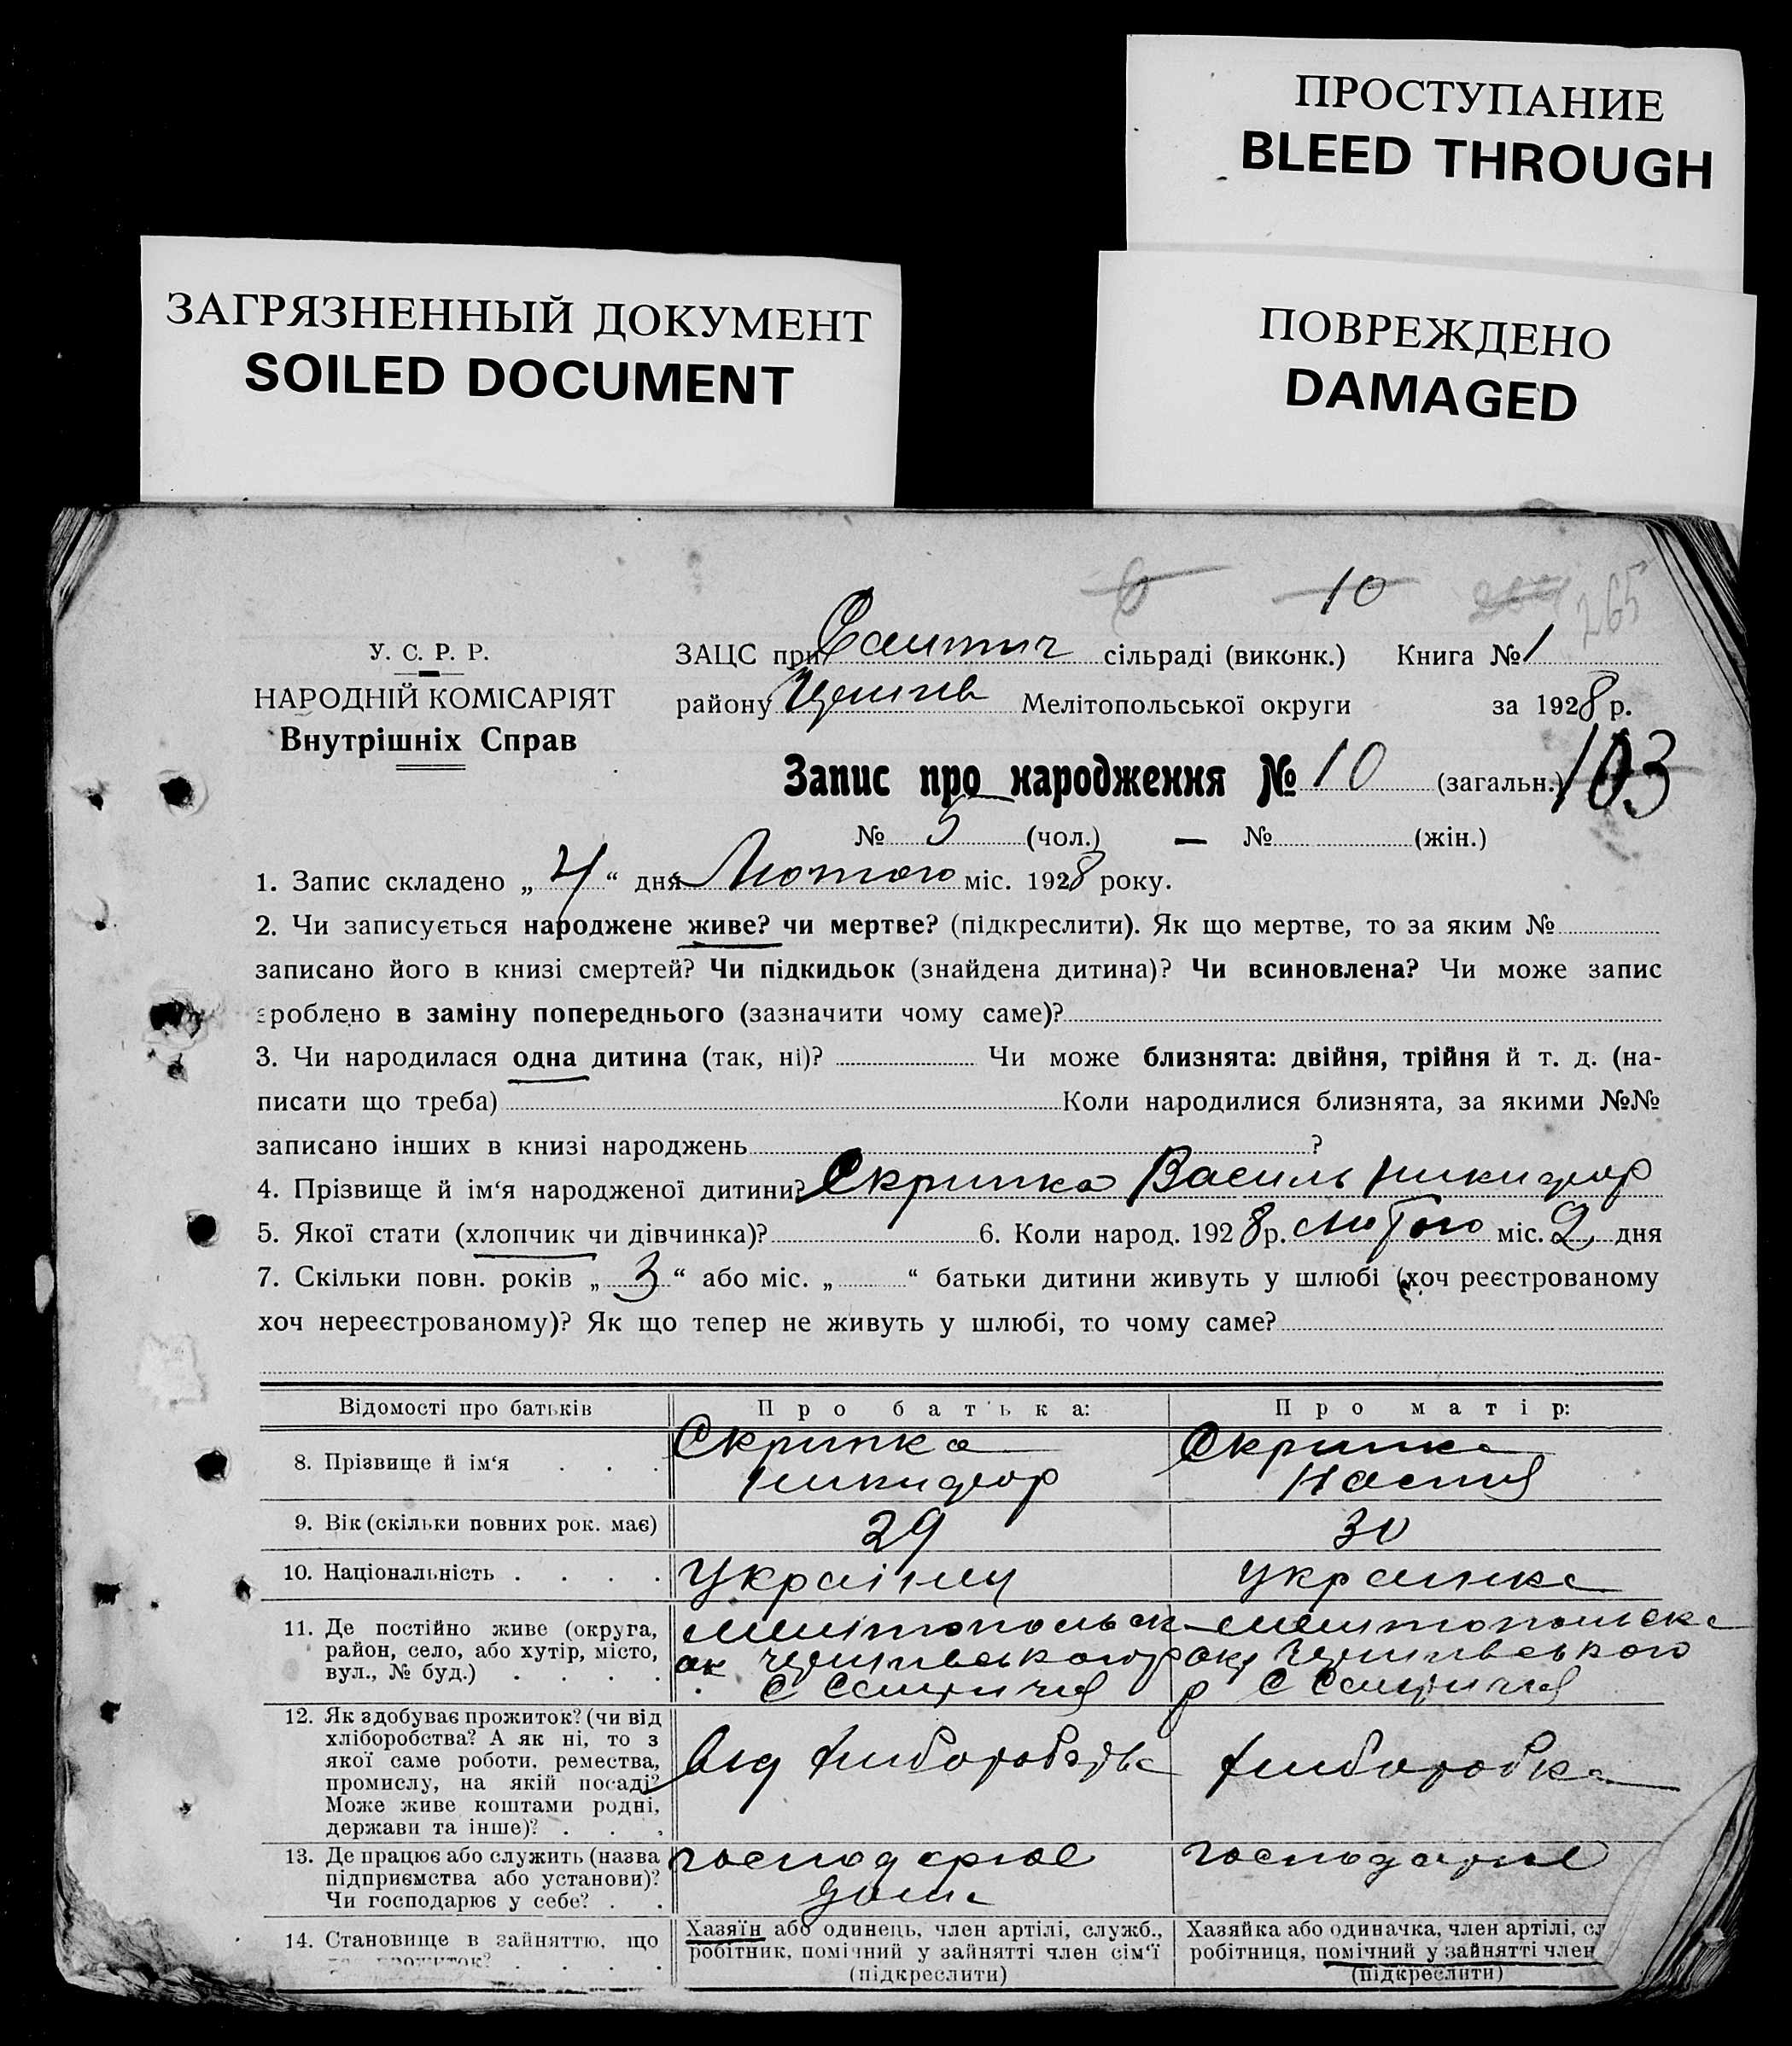 ПРОСТУПАНИЕ
BLEED THROUGH
ЗАГРЯЗНЕННЫЙ ДОКУМЕНТ
SOILED DOCUMENT
ПОВРЕЖДЕНО
DAMAGED
6 10 265
У. С. Р. Р.
НАРОДНІЙ КОМІСАРІЯТ
Внутрішніх Справ
ЗАЦС при сільраді (виконк.) Книга № 1
району Мелітопольської округи за 1928 р.
Запис про народження № 10 (загальн.) 103
№ 5 (чол.) — № (жін.)
1. Запис складено „ 4 “ дня Лютого міс. 1928 року.
2. Чи записується народжене живе? чи мертве? (підкреслити). Як що мертве, то за яким №
записано його в книзі смертей? Чи підкидьок (знайдена дитина)? Чи всиновлена? Чи може запис
зроблено в заміну попереднього (зазначити чому саме)?
3. Чи народилася одна дитина (так, ні)? Чи може близнята: двійня, трійня й т. д. (на-
писати що треба) Коли народилися близнята, за якими №№
записано інших в книзі народжень ?
4. Прізвище й ім‘я народженої дитини? Скрипка Василь Никифор
5. Якої стати (хлопчик чи дівчинка)? 6. Коли народ. 1928 р. Лютого міс. 2 дня
7. Скільки повн. років „ 3 “ або міс. „ “ батьки дитини живуть у шлюбі (хоч реєстрованому
хоч нереєстрованому)? Як що тепер не живуть у шлюбі, то чому саме?
Відомості про батьків Про батька: Про матір:
8. Прізвище й ім‘я . . . Скрипка Никифор Скрипка Настя
9. Вік (скільки повних рок. має) 29 30
10. Національність . . . . Українец украинка
11. Де постійно живе (округа,
район, село, або хутір, місто,
вул., № буд.) . . . .
12. Як здобуває прожиток? (чи від
хліборобства? А як ні, то з
якої саме роботи, ремества,
промислу, на якій посаді?
Може живе коштами родні,
держави та інше)? . . .
від хлиборобства хлиборобка
13. Де працює або служить (назва
підприємства або установи)?
Чи господарює у себе? . .
господарює
дома
господарює
14. Становище в зайняттю, що
прожиток? . . . .
Хазяїн або одинець, член артілі, служб.,
робітник, помічний у зайнятті член сім‘ї
(підкреслити)
Хазяйка або одиначка, член артілі,
робітниця, помічний у зайнятті член
(підкреслити)